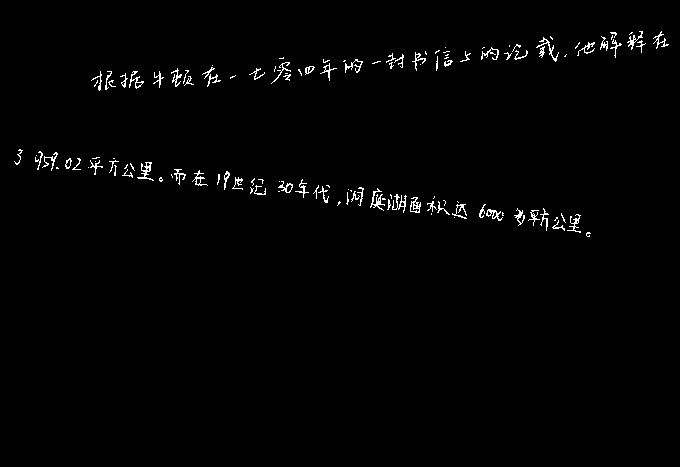 根据牛顿在一七零四年的一封书信上的记载，他解释在
3959.02平方公里。而在19世纪30年代，洞庭湖面积达6000多平方公里。